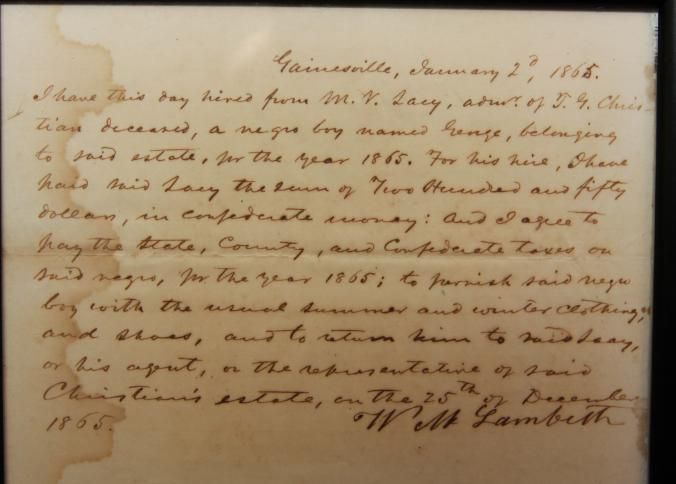 Gainesville, January 2d, 1865.
I have this day hired from M. V. Lacy, admr. of T. G. Chris-
tian deceased, a negro boy named George, belonging
to said estate, for the year 1865. For his hire, I have
paid said Lacy the sum of Two Hundred and fifty
dollars, in confederate money: and I agree to
pay the State, County, and Confederate taxes on
said negro, for the year 1865; to furnish said negro
boy with the usual summer and winter clothing,
and shoes, and to return him to said Lacy,
or his agent, or the representative of said
Christian's estate, on the 25th of December
1865.
W M Lambeth